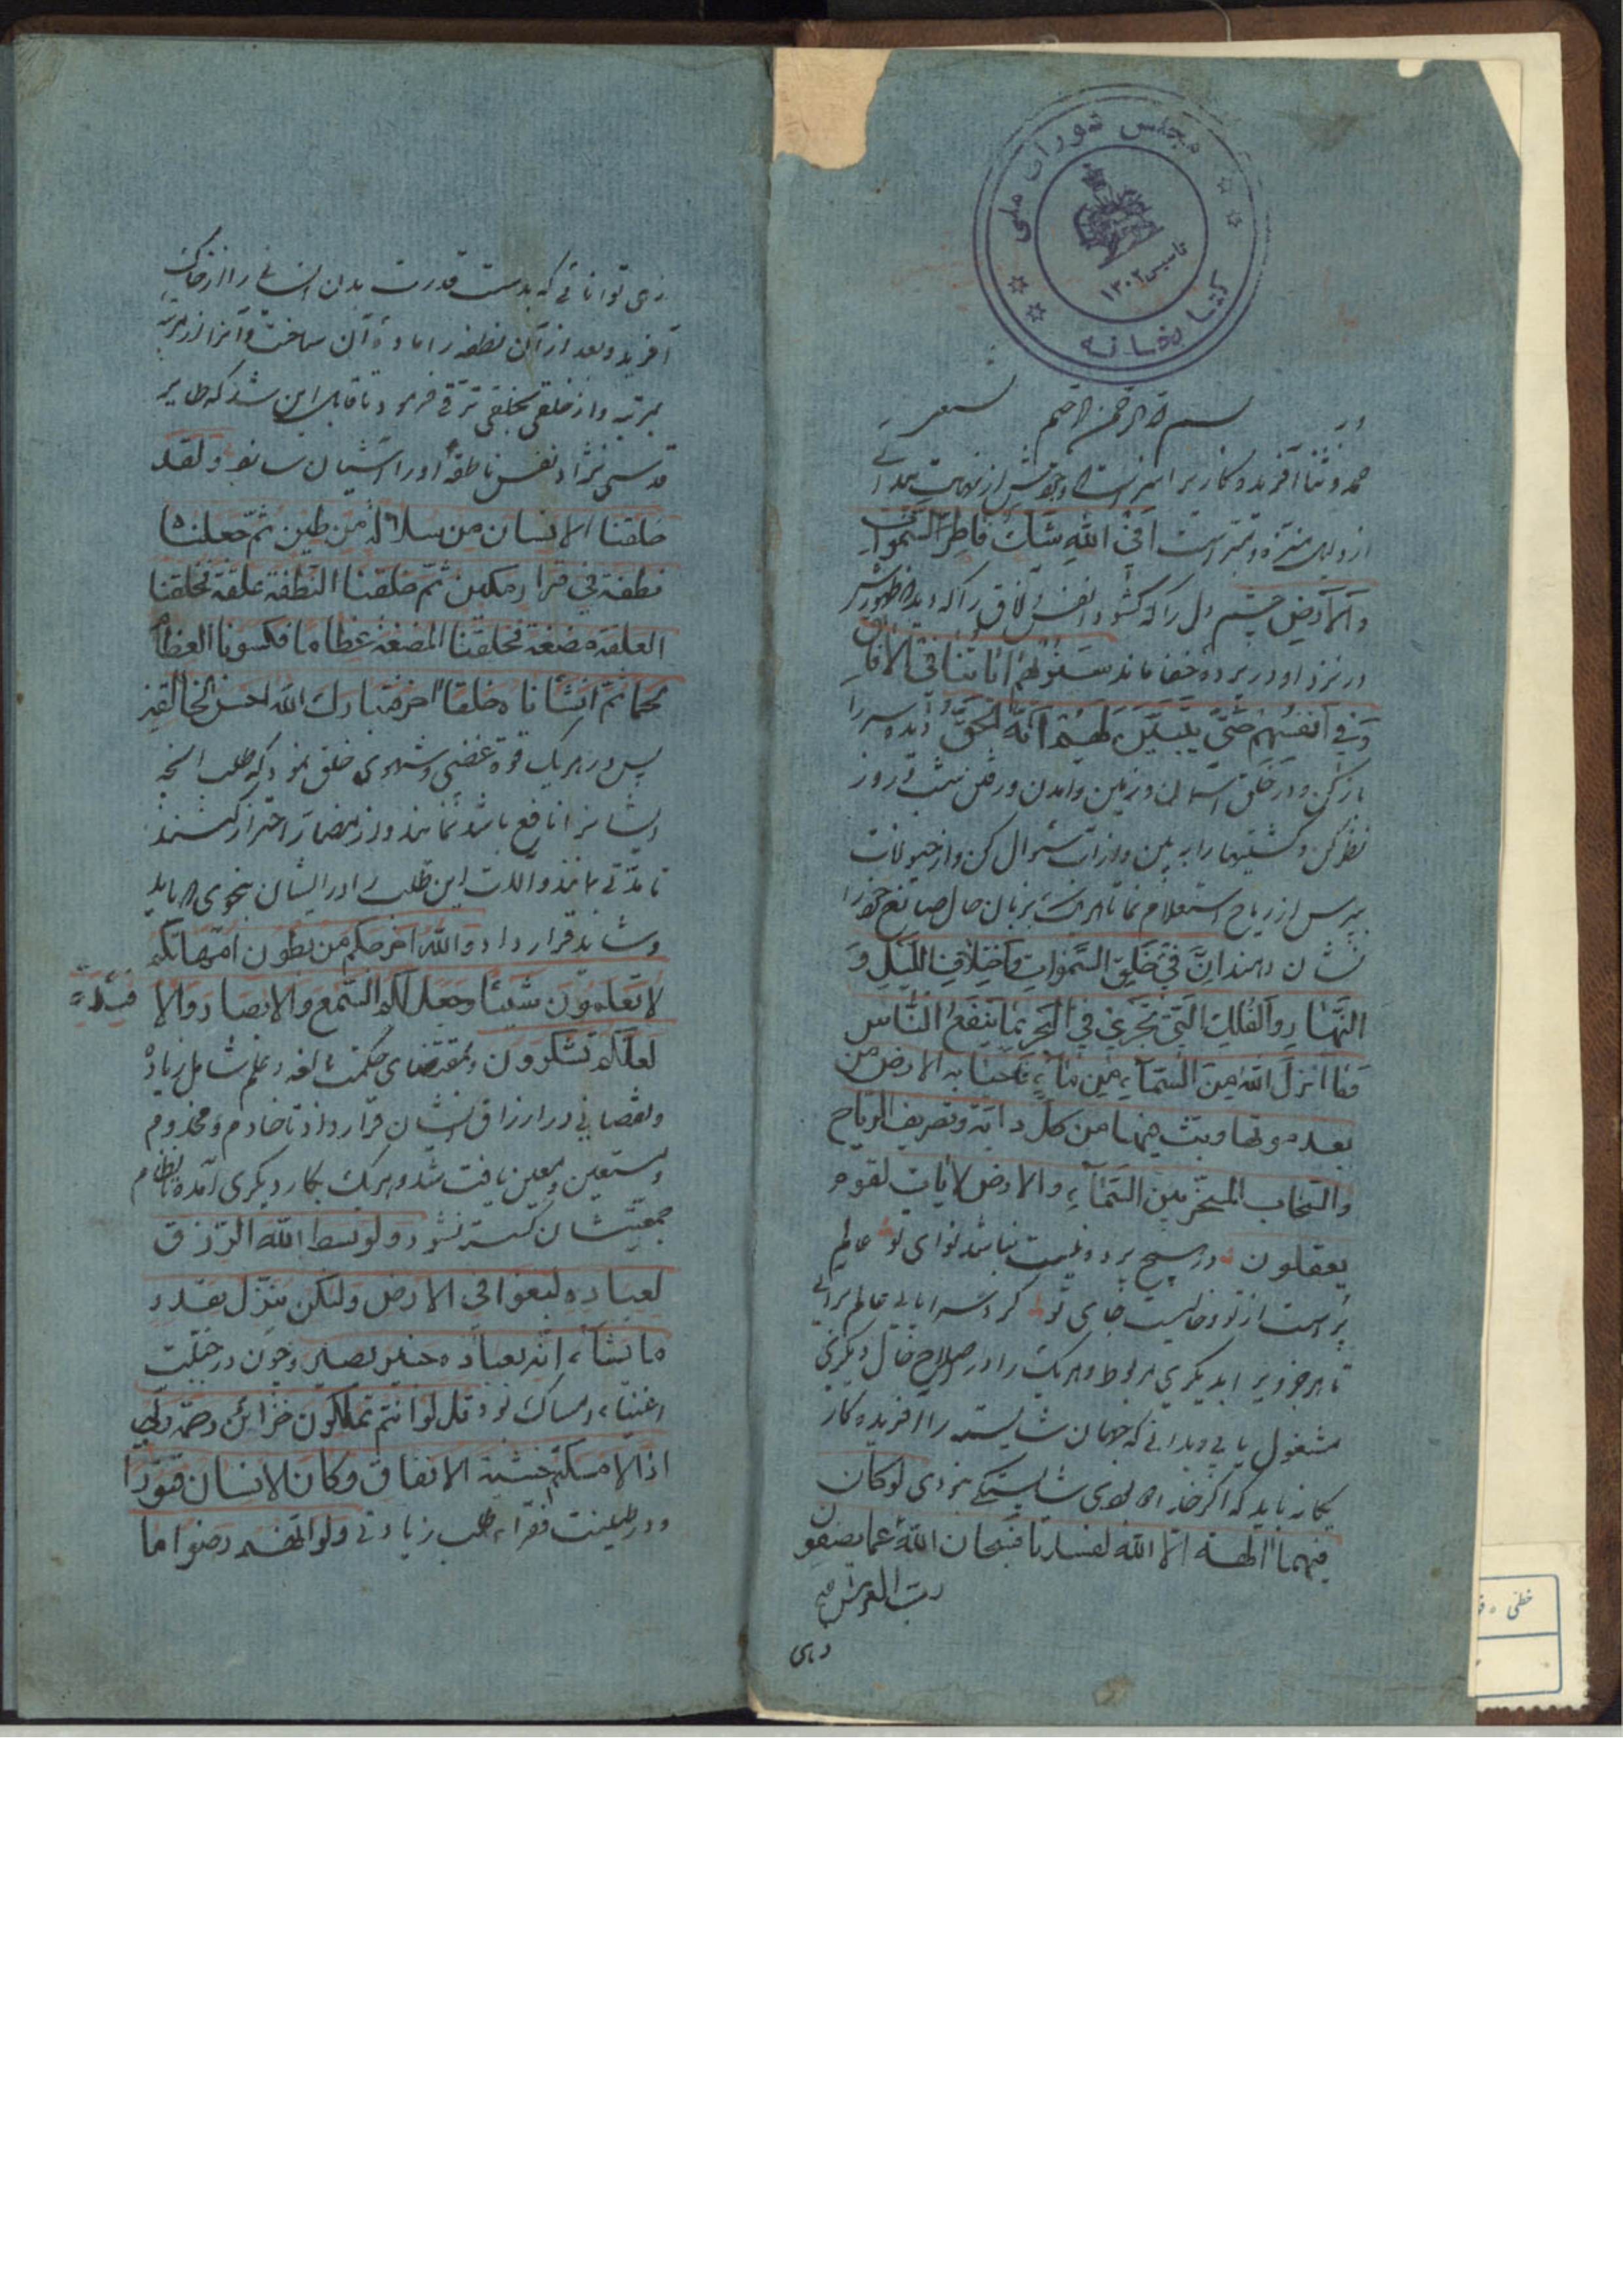 مجلس شورای ملی
کتابخانه
تاسیس ۱۳۰۲
بسم الله الرحمن الرحیم
حمد و ثنا آفریدگاری را سزاست که وجودش از
از دلیل منزه و مبراست افی الله شک فاطر السموات
والارض چشم دل را که گشود انفس و آفاق را که دید که ظهورش
در نزد او در پرده خفا ماند سنریهم آیاتنا فی الآفاق
وفی انفسهم حتی یتبین لهم انه الحق دیده سر را
باز کن و در خلق آسمان و زمین و آمدن و رفتن شب و روز
نظر کن و کشتیها را ببین و از آب سئوال کن و از حیوانات
بپرس از ریاح استعلام نما تا هر یک بزبان حال صانع خود را
نشان دهند ان فی خلق السموات واختلاف اللیل و
النهار والفلک التی تجری فی البحر بما ینفع الناس
وما انزل الله من السماء من ماء فاحیا به الارض من
بعد موتها وبث فیها من کل دابة وتصریف الریاح
والسحاب المسخر بین السماء والارض لایات لقوم
یعقلون در هیچ پرده نیست نباشد نوای تو عالم
پر است از تو و خالیست جای تو گرد سراپای عالم برآئی
تا هر جزویرا بدیگری مربوط و هر یک را در اصلاح حال دیگری
مشغول یابی و بدانی که جهان شایسته را آفریدگار
یگانه باید که اگر جز او بودی شایستگی نبودی لو کان
فیهما الهة الا الله لفسدتا فسبحان الله عما یصفون
رب العرش
زهی
زهی توانائی که بدست قدرت بدن انسانی را از خاک
آفرید و بعد از آن نطفه را ماده آن ساخت و آنرا از مرتبه
بمرتبه و از خلقی بخلقی ترقی فرمود تا قابل این شد که طایر
قدسی نژاد نفس ناطقه او را آشیان سازد ولقد
خلقنا الانسان من سلالة من طین ثم جعلناه
نطفة فی قرار مکین ثم خلقنا النطفة علقة فخلقنا
العلقة مضغة فخلقنا المضغة عظاما فکسونا العظام
لحما ثم انشأناه خلقا اخر فتبارک الله احسن الخالقین
پس در هر یک قوه غضبی و شهوی خلق نمود که طلب آنچه
ایشانرا نافع باشد نمایند و از مضار احتراز کنند
تا مدتی بمانند و آلات این طلب را در ایشان بنحوی که باید
و شاید قرار داد والله اخرجکم من بطون امهاتکم
لا تعلمون شیئا وجعل لکم السمع والابصار والا فئدة
لعلکم تشکرون و بمقتضای حکمت بالغه و علم شامل زیاده
و نقصانی در ارزاق ایشان قرار داد تا خادم و مخدوم
و مستعین و معین یافت شد و هر یک بکار دیگری آمده نظام
جمعیتشان گسسته نشود ولو بسط الله الرزق
لعباده لبغوا فی الارض ولکن ینزل بقدر
ما یشاء انه بعباده خبیر بصیر و چون در جبلت
اغنیاء امساک بود قل لو انتم تملکون خزائن رحمة ربی
اذا لامسکتم خشیة الانفاق وکان الانسان قتورا
و در طینت فقراء طلب زیادتی ولو انهم رضوا ما
خطی